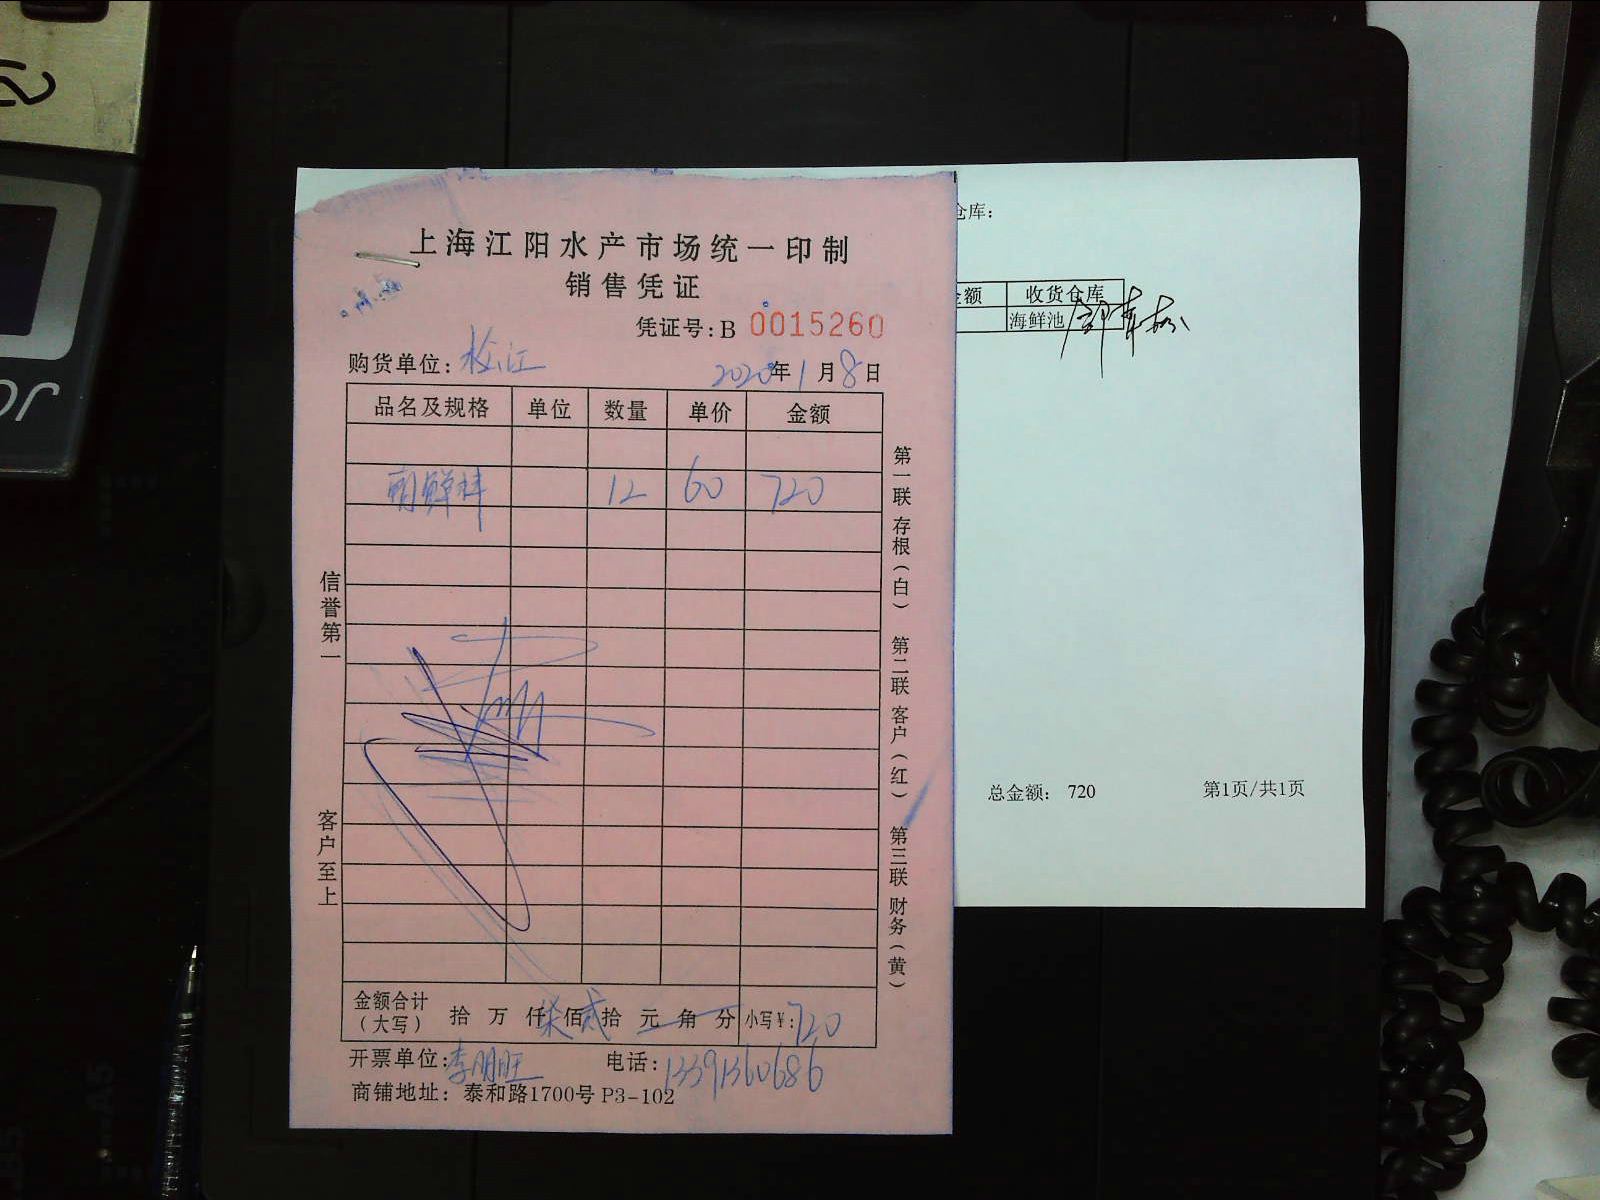 上海江阳水产市场统一印制
销售凭证
凭证号:B 0015260
购货单位: 松江 2020年1月8日
品名及规格 单位 数量 单价 金额
朝鲜蚌 12 60 720
信誉第一
客户至上
第一联 存根(白) 第二联 客户(红) 第三联 财务(黄)
金额合计(大写) 拾 万 仟柒佰贰拾 元 角 分 小写¥:720
开票单位:李明旺 电话:13391360686
商铺地址: 泰和路1700号 P3-102
仓库:
金额 收货仓库
海鲜池
总金额: 720 第1页/共1页
A5